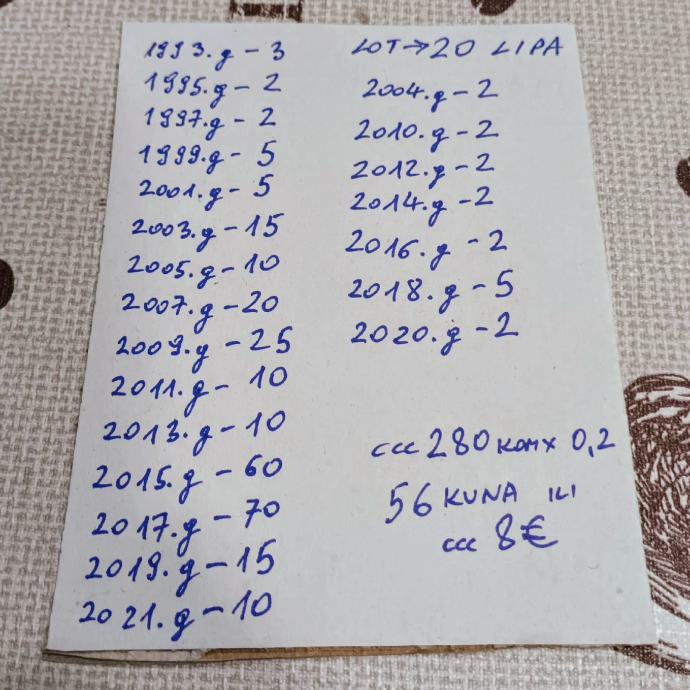 1993.g - 3
1995.g - 2
1997.g - 2
1999.g - 5
2001.g - 5
2003.g - 15
2005.g - 10
2007.g - 20
2009.g - 25
2011.g - 10
2013.g - 10
2015.g - 60
2017.g - 70
2019.g - 15
2021.g - 10
LOT → 20 LIPA
2004.g - 2
2010.g - 2
2012.g - 2
2014.g - 2
2016.g - 2
2018.g - 5
2020.g - 2
ccc 280 KOM X 0,2
56 KUNA ILI
ccc 8€